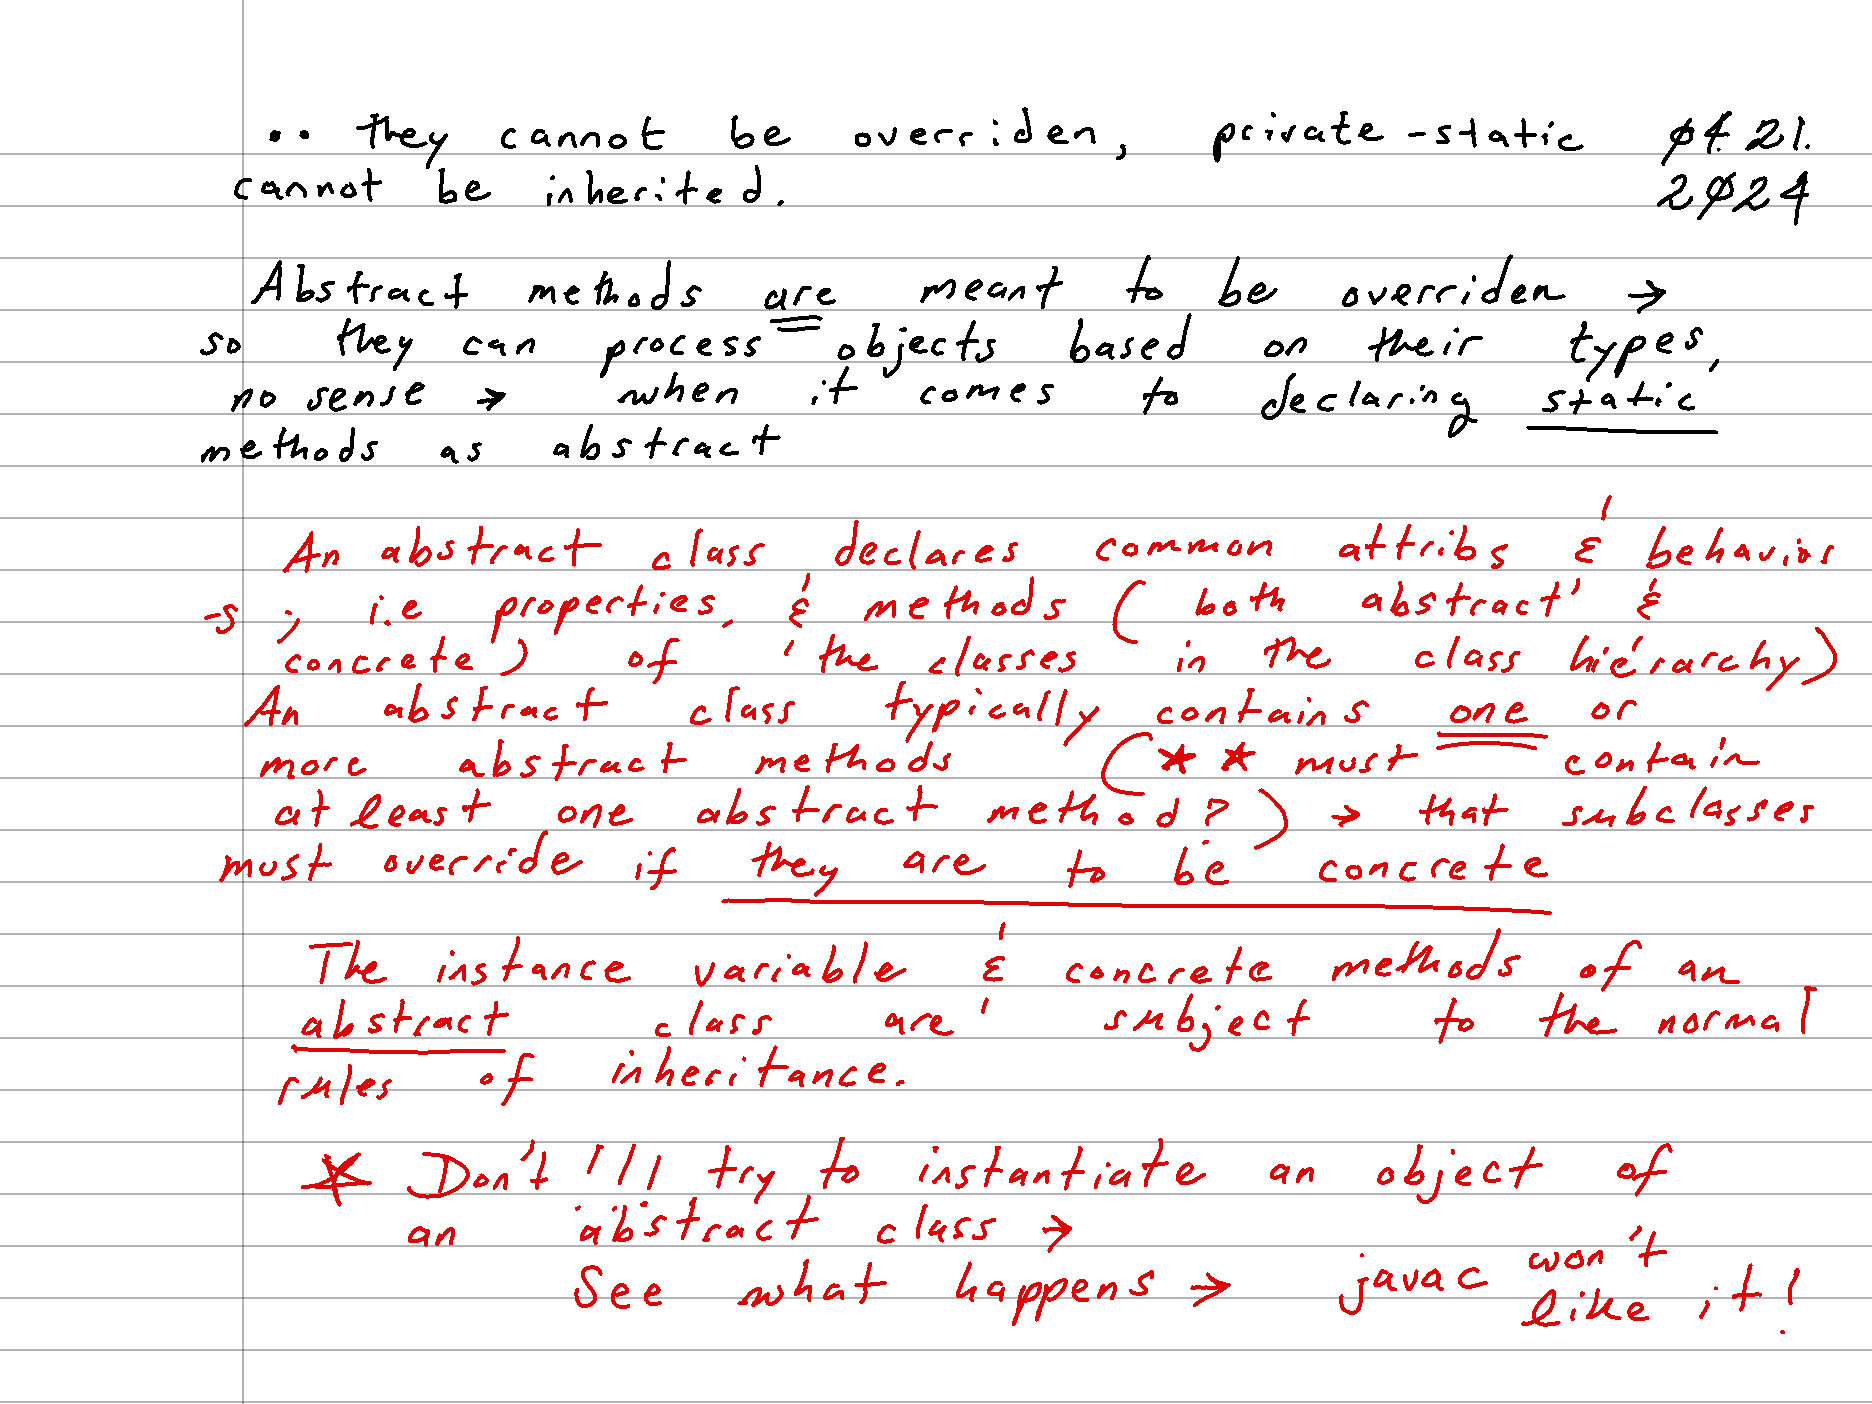 .. they cannot be overriden, private-static ø4.21.
cannot be inherited. 2ø24
Abstract methods are meant to be overriden →
so they can process objects based on their types,
no sense → when it comes to declaring static
methods as abstract
An abstract class declares common attribs & behavior
-s ; i.e properties, & methods ( both abstract &
concrete ) of the classes in the class hierarchy)
An abstract class typically contains one or
more abstract methods (★★ must contain
at least one abstract method? ) → that subclasses
must override if they are to be concrete
The instance variable & concrete methods of an
abstract class are subject to the normal
rules of inheritance.
★ Don't !!! try to instantiate an object of
an abstract class →
See what happens → javac won't
like it!